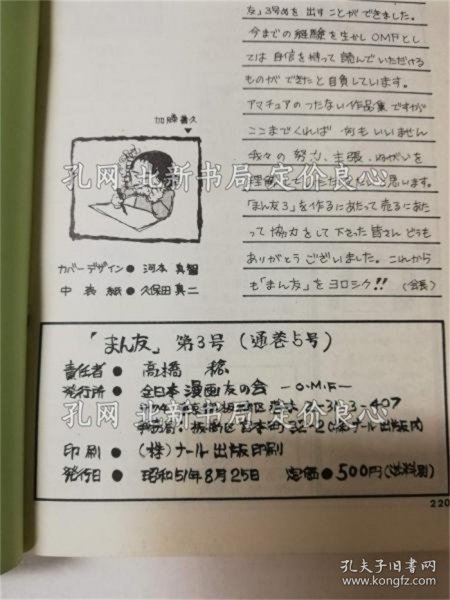 友」3号めを 出すことが できました。
今までの 経験を 生かし OMFとし
ては 自信を 持って 読んで いただける
ものが できたと 自負しています。
アマチュアの つたない 作品集 ですが
ここまで くれば 何も いいません
我々の 努力、主張、ねがいを
理解して いただ 思います。
「まん友3」を 作るに あたって 売るに あた
って 協力を して 下さった 皆さん どうも
ありがとう ございました。これから
も「まん友」を ヨロシク!! (会長)
加藤
カバーデザイン● 河本 真智
中表紙● 久保田 真二
孔网 北新书局 定价良心
「まん友」第3号(通巻5号)
責任者 ● 高橋
発行所 ● 全日本 漫画友の会 —O.M.F—
孔网 北新书局 定价良心
印刷 ● (株)ナール出版印刷
発行日 ● 昭和51年8月25日 定価●500円(送料別)
220
孔夫子旧书网
www.kongfz.com